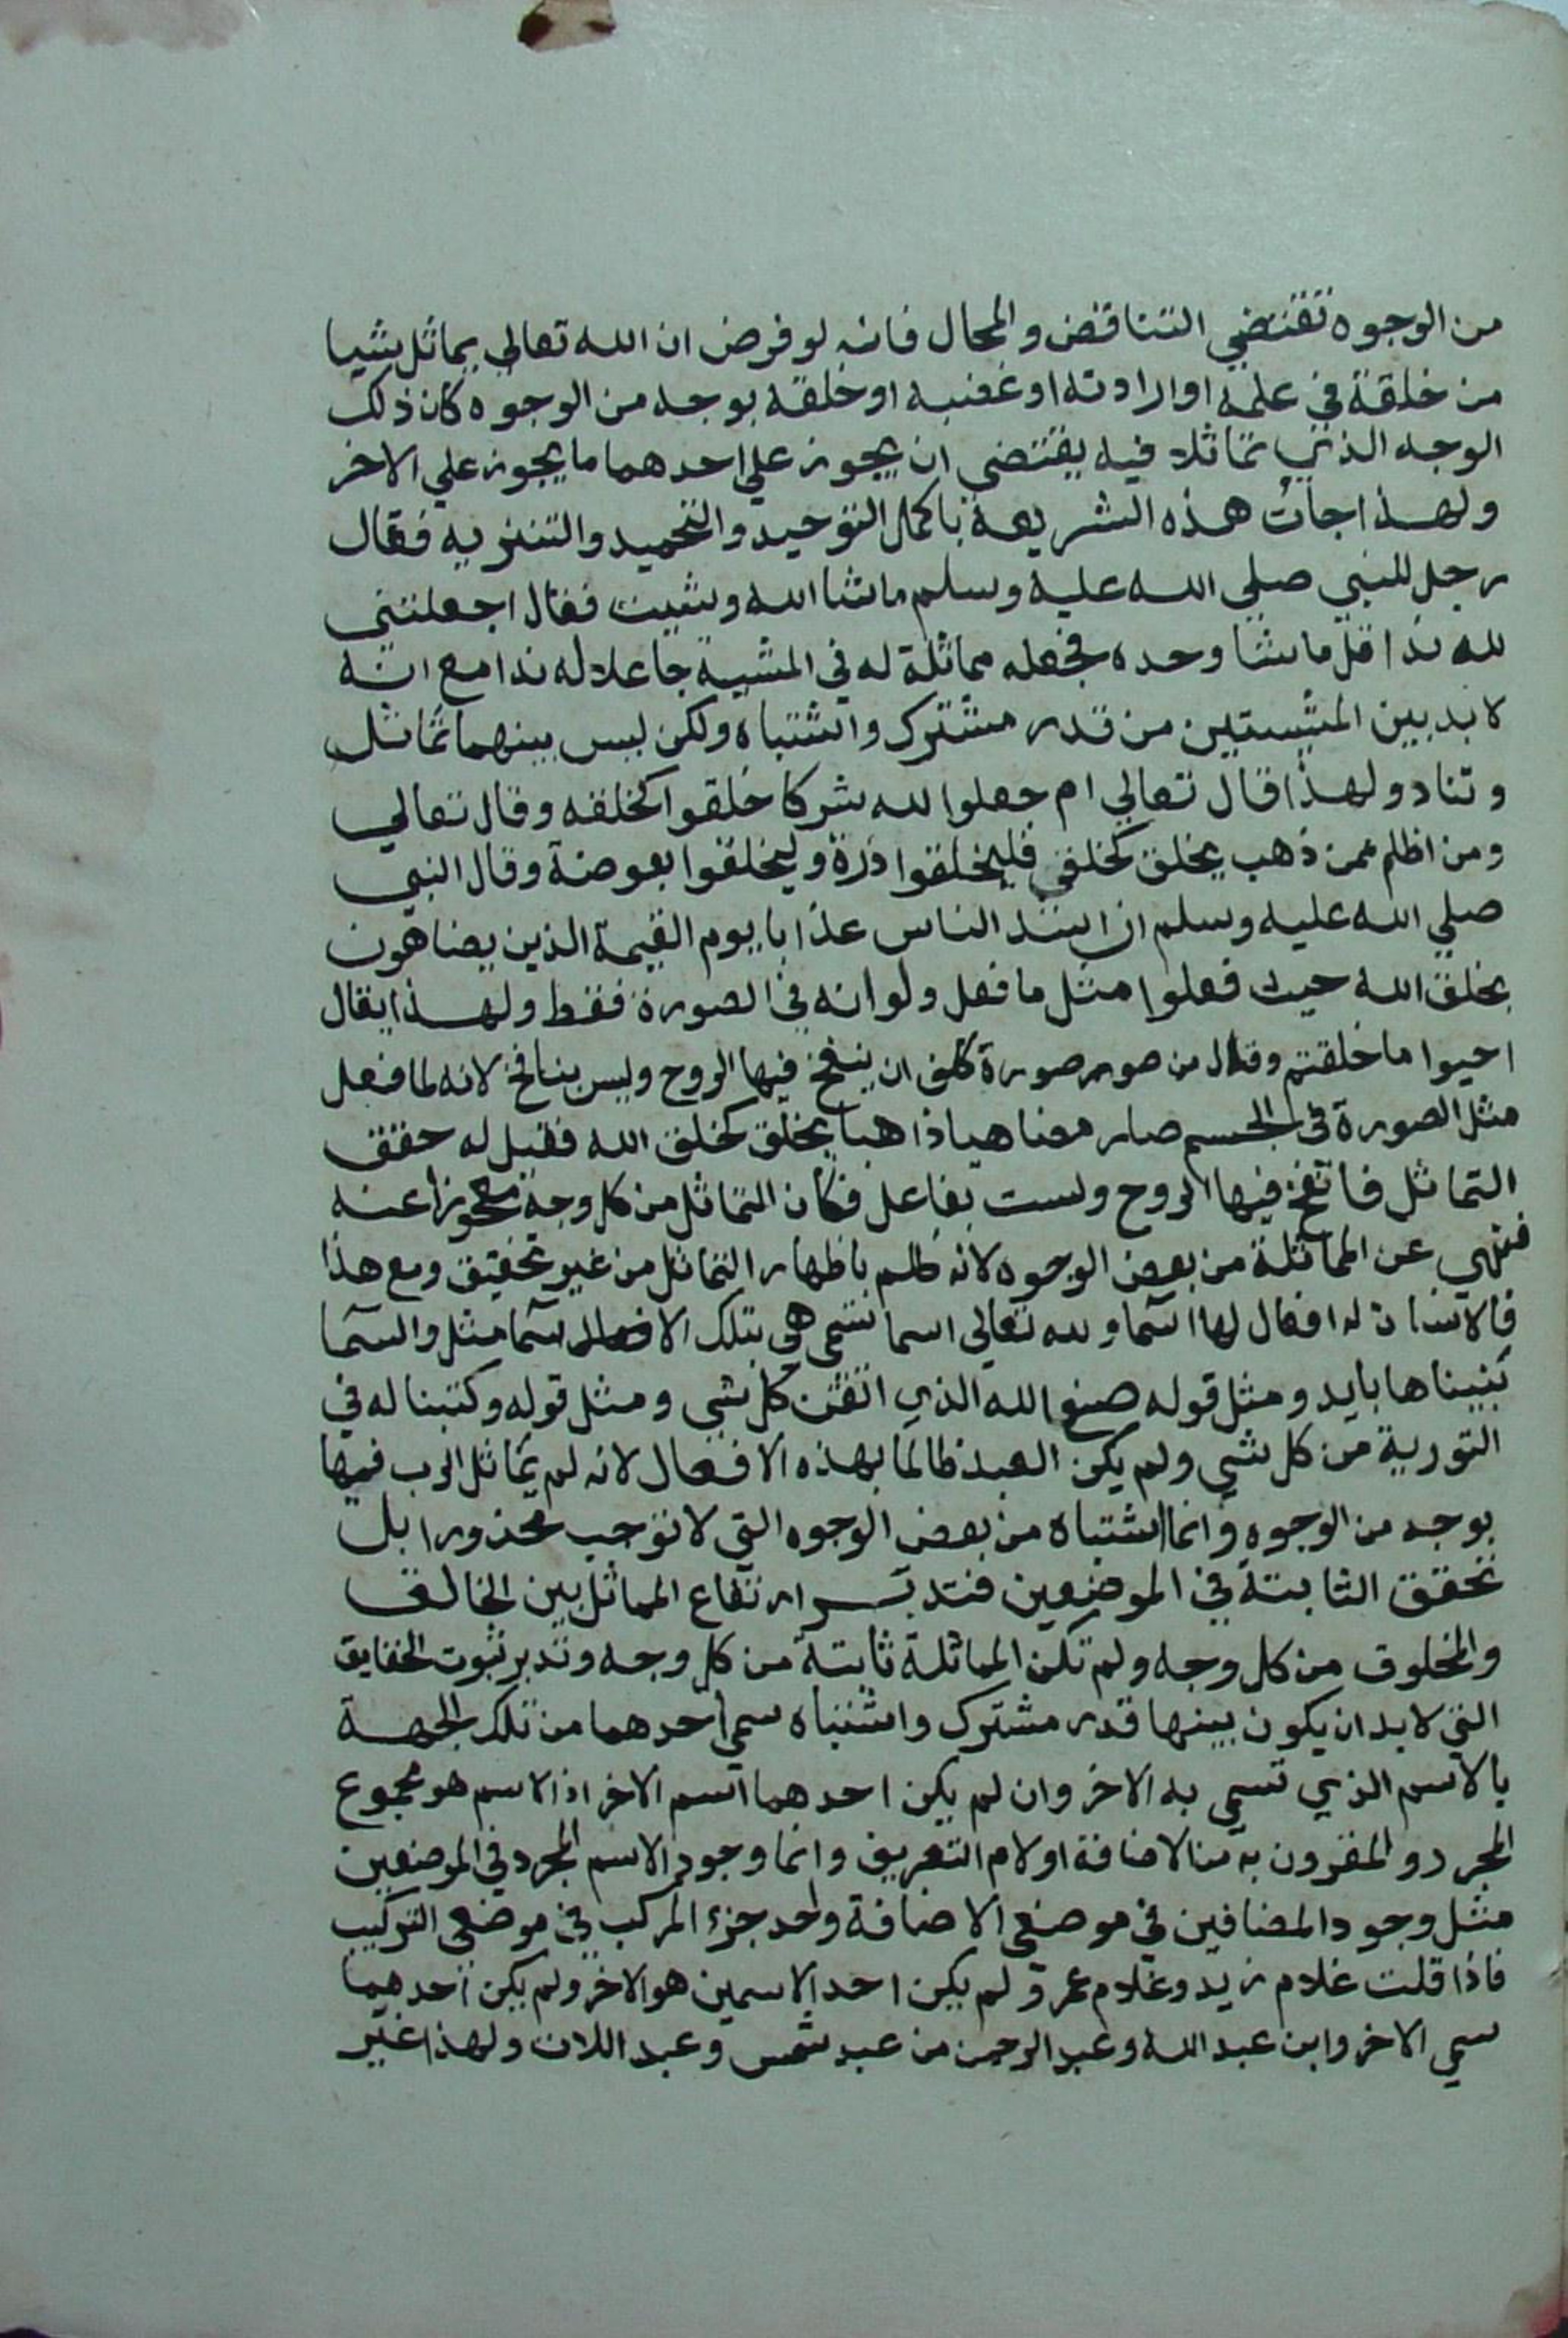 من الوجوه تقتضي التناقض والمحال فانه لو فرض ان الله تعالي يماثل شيا
من خلقة في علمه او ارادته او غضبه او خلقه بوجه من الوجوه كان ذلك
الوجه الذي تماثلا فيه يقتضى ان يجوز علي احدهما ما يجوز علي الاخر
ولهذا جات هذه الشريعة باكمل التوحيد والتحميد والتنزيه فقال
رجل للنبي صلي الله عليه وسلم ماشا الله وشيت فقال اجعلتني
لله ندا قل ماشا وحده فجعله مماثلة له في المشية جاعلا له ندا مع انه
لا بد بين المشيتين من قدر مشترك واشتباه ولكن ليس بينهما تماثل
وتناد ولهذا قال تعالي ام جعلوا لله شركا خلقوا كخلقه وقال تعالي
ومن اظلم ممن ذهب يخلق كخلقي فليخلقوا ذرة وليخلقوا بعوضة وقال النبي
صلي الله عليه وسلم ان اشد الناس عذابا يوم القيمة الذين يضاهون
بخلق الله حيث فعلوا مثل ما فعل ولو انه في الصورة فقط ولهذا يقال
احيوا ما خلقتم وقال من صور صورة كلف ان ينفخ فيها الروح وليس بنافخ لانه لما فعل
مثل الصورة في الجسم صار مضاهيا ذاهبا يخلق كخلق الله فقيل له حقق
التماثل فانفخ فيها الروح ولست بفاعل فكان التماثل من كل وجه معجوزا عنه
فنهي عن المماثلة من بعض الوجوه لانه ظلم باظهار التماثل من غير تحقيق ومع هذا
فالانسان له افعال لها اسما ولله تعالي اسما تسمى هي بتلك الافعال اسما مثل والسما
بنيناها بايد ومثل قوله صنع الله الذي اتقن كل شي ومثل قوله وكتبنا له في
التورية من كل شي ولم يكن العبد ظالما بهذه الافعال لانه لم يماثل الرب فيها
بوجه من الوجوه وانما اشتباه من بعض الوجوه التي لا توجب محذورا بل
تحقق الثابتة في الموضعين فتدبر ارتفاع المماثل بين الخالق
والمخلوق من كل وجه ولم تكن المماثلة ثابتة من كل وجه وتدبر ثبوت الحقايق
التي لا بد ان يكون بينها قدر مشترك واشتباه سمي احدهما من تلك الجهة
بالاسم الذي تسمي به الاخر وان لم يكن احدهما اسم الاخر اذ الاسم هو مجموع
المجرد والمقرون به من الاضافة او لام التعريف وانما وجود الاسم المجرد في الموضعين
مثل وجود المضافين في موضعي الاضافة واحد جزء المركب في موضعي التركيب
فاذا قلت غلام زيد وغلام عمرو لم يكن احد الاسمين هو الاخر ولم يكن احدهما
سمي الاخر وابن عبد الله وعبد الرحمن من عبد شمس وعبد اللات ولهذا غير